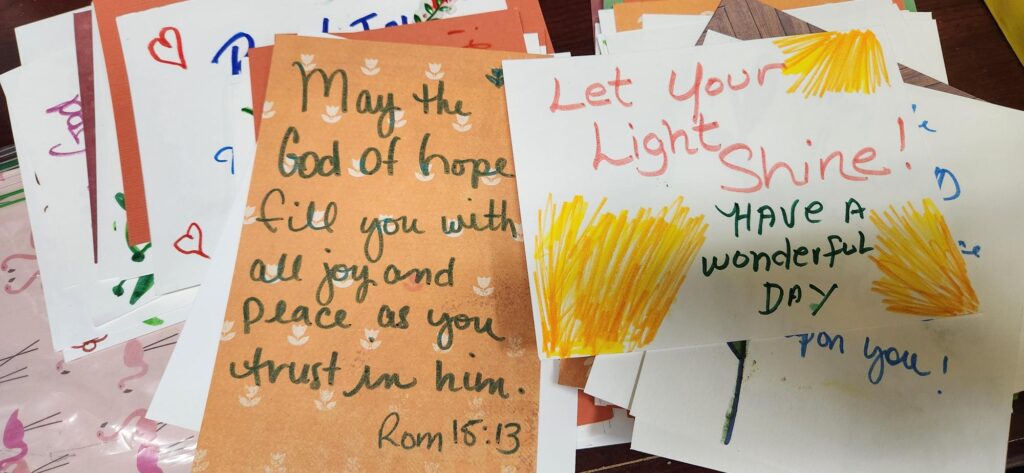 May the
God of hope
fill you with
all joy and
peace as you
trust in him.
Rom 15:13
Let Your
Light
Shine!
HAVE A
wonderful
DAY
pon you!